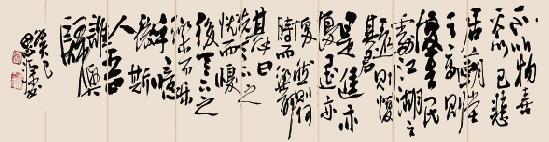 不以物喜
不以己悲
居廟堂
之高則
憂其民
處江湖之
遠則憂
其君
是進亦
憂退亦
憂然則何
時而樂耶
其必曰
先天下之
憂而憂
後天下之
樂而樂
噫微斯
人吾
誰與
歸
癸巳